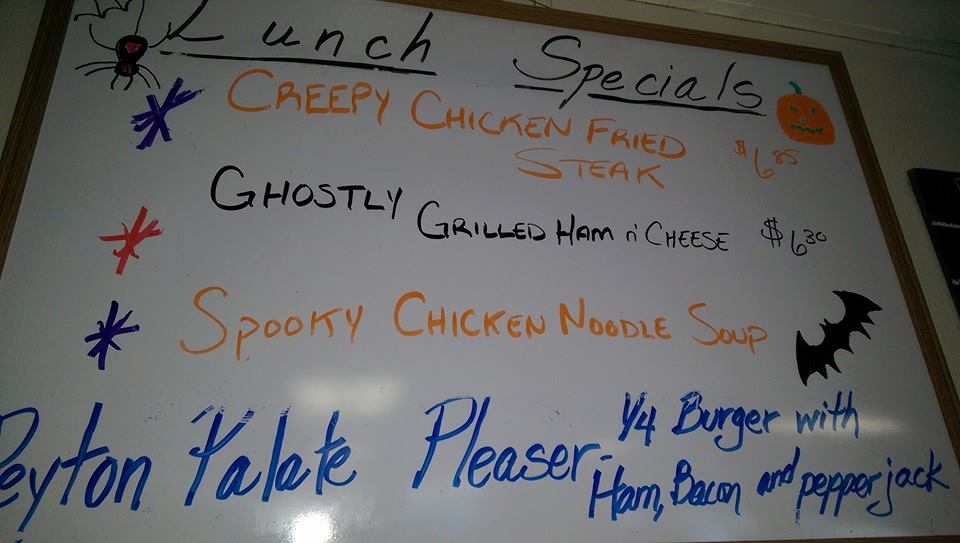 Lunch Specials
* CREEPY CHICKEN FRIED
STEAK $6 85
* GHOSTLY GRILLED HAM n' CHEESE $6 30
* SPOOKY CHICKEN NOODLE SOUP
Peyton Yalate Pleaser - 1/4 Burger with
Ham, Bacon and pepper jack